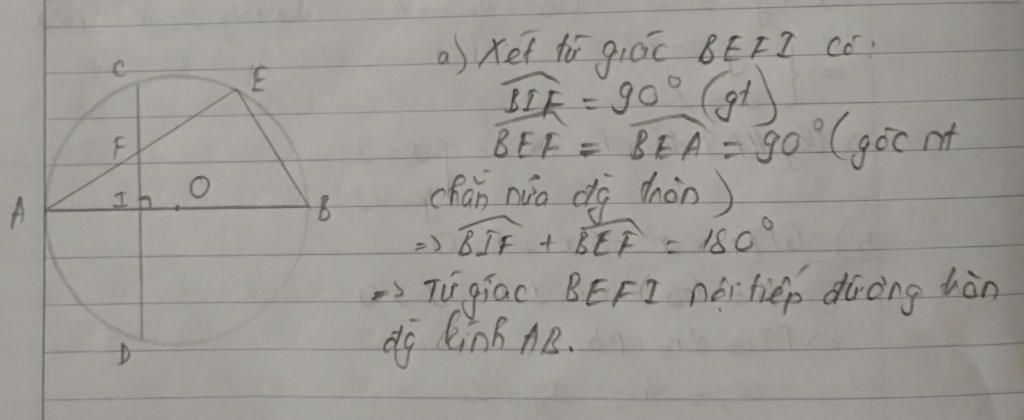 a) Xét tứ giác BEFI có:
BIF = 90° (gt)
BEF = BEA = 90° (góc nt
chắn nửa đg tròn)
=> BIF + BEF = 180°
=> Tứ giác BEFI nội tiếp đường tròn
đg kính AB.
C
E
F
I
O
A
B
D